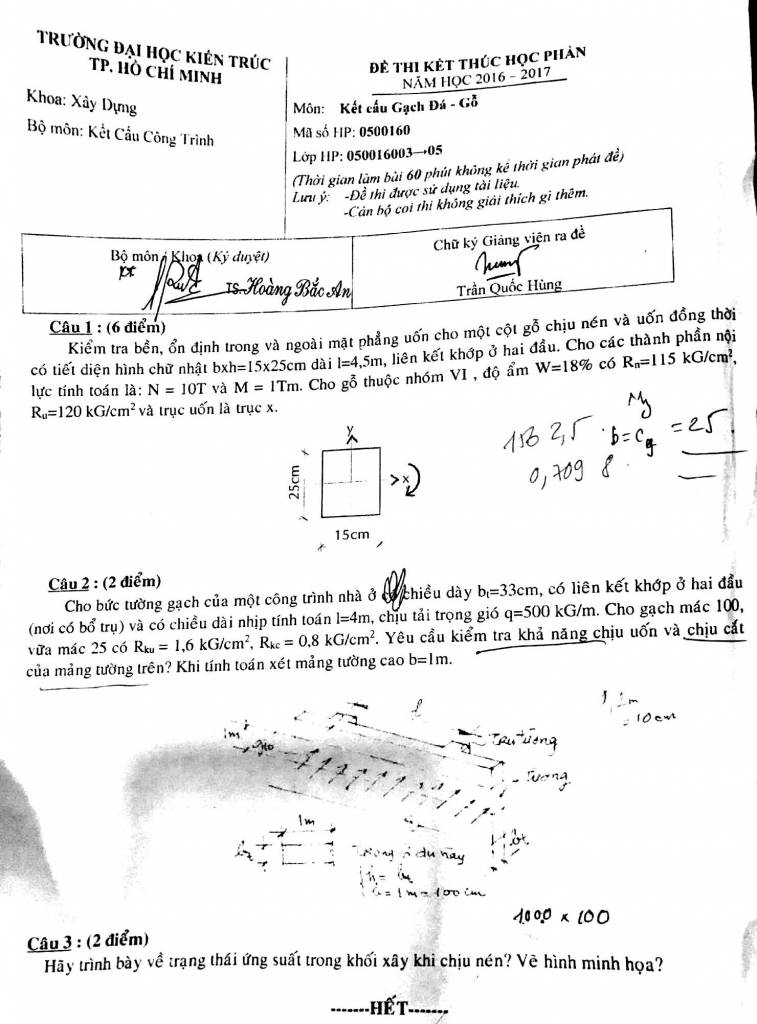 TRƯỜNG ĐẠI HỌC KIẾN TRÚC
TP. HỒ CHÍ MINH
Khoa: Xây Dựng
Bộ môn: Kết Cấu Công Trình
ĐỀ THI KẾT THÚC HỌC PHẦN
NĂM HỌC 2016 – 2017
Môn: Kết cấu Gạch Đá - Gỗ
Mã số HP: 0500160
Lớp HP: 050016003→05
(Thời gian làm bài 60 phút không kể thời gian phát đề)
Lưu ý: -Đề thi được sử dụng tài liệu.
-Cán bộ coi thi không giải thích gì thêm.
Bộ môn / Khoa (Ký duyệt)
TS. Hoàng Bắc An
Chữ ký Giảng viên ra đề
Trần Quốc Hùng
Câu 1 : (6 điểm)
Kiểm tra bền, ổn định trong và ngoài mặt phẳng uốn cho một cột gỗ chịu nén và uốn đồng thời
có tiết diện hình chữ nhật bxh=15x25cm dài l=4,5m, liên kết khớp ở hai đầu. Cho các thành phần nội
lực tính toán là: N = 10T và M = 1Tm. Cho gỗ thuộc nhóm VI , độ ẩm W=18% có Rn=115 kG/cm²,
Ru=120 kG/cm² và trục uốn là trục x.
My
156 2,5 b=cg = 25
0,709 8
y
x
25cm
15cm
Câu 2 : (2 điểm)
Cho bức tường gạch của một công trình nhà ở chiều dày bt=33cm, có liên kết khớp ở hai đầu
(nơi có bổ trụ) và có chiều dài nhịp tính toán l=4m, chịu tải trọng gió q=500 kG/m. Cho gạch mác 100,
vữa mác 25 có Rku = 1,6 kG/cm², Rkc = 0,8 kG/cm². Yêu cầu kiểm tra khả năng chịu uốn và chịu cắt
của mảng tường trên? Khi tính toán xét mảng tường cao b=1m.
l
= 10cm
1m
gió
Trụ tường
Tường
1m
bt
bt
b = 1m = 100cm
1000 x 100
Câu 3 : (2 điểm)
Hãy trình bày về trạng thái ứng suất trong khối xây khi chịu nén? Vẽ hình minh họa?
-------HẾT-------